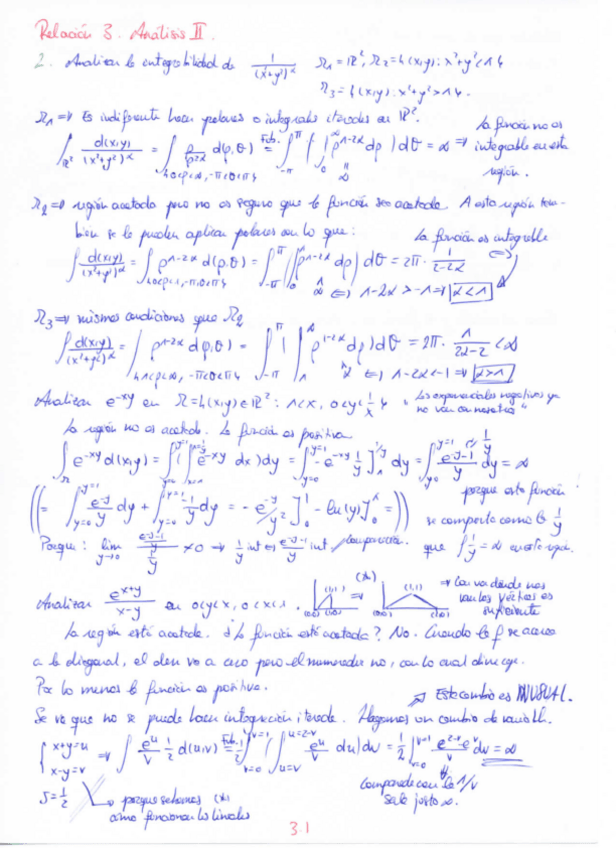 Relación 3. Análisis II.
2. Analizar la integrabilidad de 1/(x²+y²)^α Ω₁=ℝ²; Ω₂={(x,y): x²+y²<1}
Ω₃={(x,y): x²+y²>1}.
Ω₁ ⇒ Es indiferente hacer polares o integrales iteradas en ℝ².
∫_ℝ² d(x,y)/(x²+y²)^α = ∫_{0<ρ<∞, -π<θ<π} ρ/ρ^2α d(ρ,θ) =Fub. ∫_-π^π ( ∫_0^∞ ρ^1-2α dρ ) dθ = ∞ ⇒ La función no es integrable en esta región.
Ω₂ ⇒ región acotada pero no es seguro que la función sea acotada. A esta región tam-
bién se le pueden aplicar polares con lo que: La función es integrable
∫ d(x,y)/(x²+y²)^α = ∫_{0<ρ<1, -π<θ<π} ρ^1-2α d(ρ,θ) = ∫_-π^π ( ∫_0^1 ρ^1-2α dρ ) dθ = 2π · 1/(2-2α) ⇔
∞ ⇔ 1-2α > -1 ⇒ α<1
Ω₃ ⇒ mismas condiciones que Ω₂
∫ d(x,y)/(x²+y²)^α = ∫_{1<ρ<∞, -π<θ<π} ρ^1-2α d(ρ,θ) = ∫_-π^π ( ∫_1^∞ ρ^1-2α dρ ) dθ = 2π · 1/(2α-2) < ∞
⇔ 1-2α < -1 ⇒ α>1
Analizar e^-xy en Ω={(x,y)∈ℝ²: 1<x, 0<y<1/x} "Las exponenciales negativas ya no van con nosotros"
La región no es acotada. La función es positiva
∫_Ω e^-xy d(x,y) = ∫_{y=0}^{y=1} ( ∫_{x=1}^{x=1/y} e^-xy dx ) dy = ∫_{y=0}^{y=1} -e^-xy 1/y ]_1^{1/y} dy = ∫_{y=0}^{y=1} (e^-y - e^-1)/y dy = ∞
porque esta función
se comporta como la 1/y
Porque: lim_{y→0} ≠ 0 ⇒ 1/y int ⇔ int, comparación. que ∫ 1/y = ∞ en esta región.
Analizar e^{x+y}/(x-y) en 0<y<x, 0<x<1. (1,1) (0,0) (1,0) (*) ⇒ (1,1) (0,0) ⇒ Con ver dónde nos van los vértices es suficiente
La región está acotada. ¿La función está acotada? No. Cuando la f se acerca
a la diagonal, el den va a cero pero el numerador no, con lo cual diverge.
Por lo menos la función es positiva.
Se ve que no se puede hacer integración iterada. Hagamos un cambio de variable. → Este cambio es INUSUAL.
{ x+y=u x-y=v ⇒ ∫ e^u/v 1/2 d(u,v) =Fub. 1/2 ∫_{v=0}^{v=1} ( ∫_{u=v}^{u=2-v} e^u/v du ) dv = 1/2 ∫_{v=0}^{v=1} (e^{2-v} - e^v)/v dv = ∞
J=1/2 porque sabemos (*) cómo funcionan las lineales
comparada con la 1/v
3.1